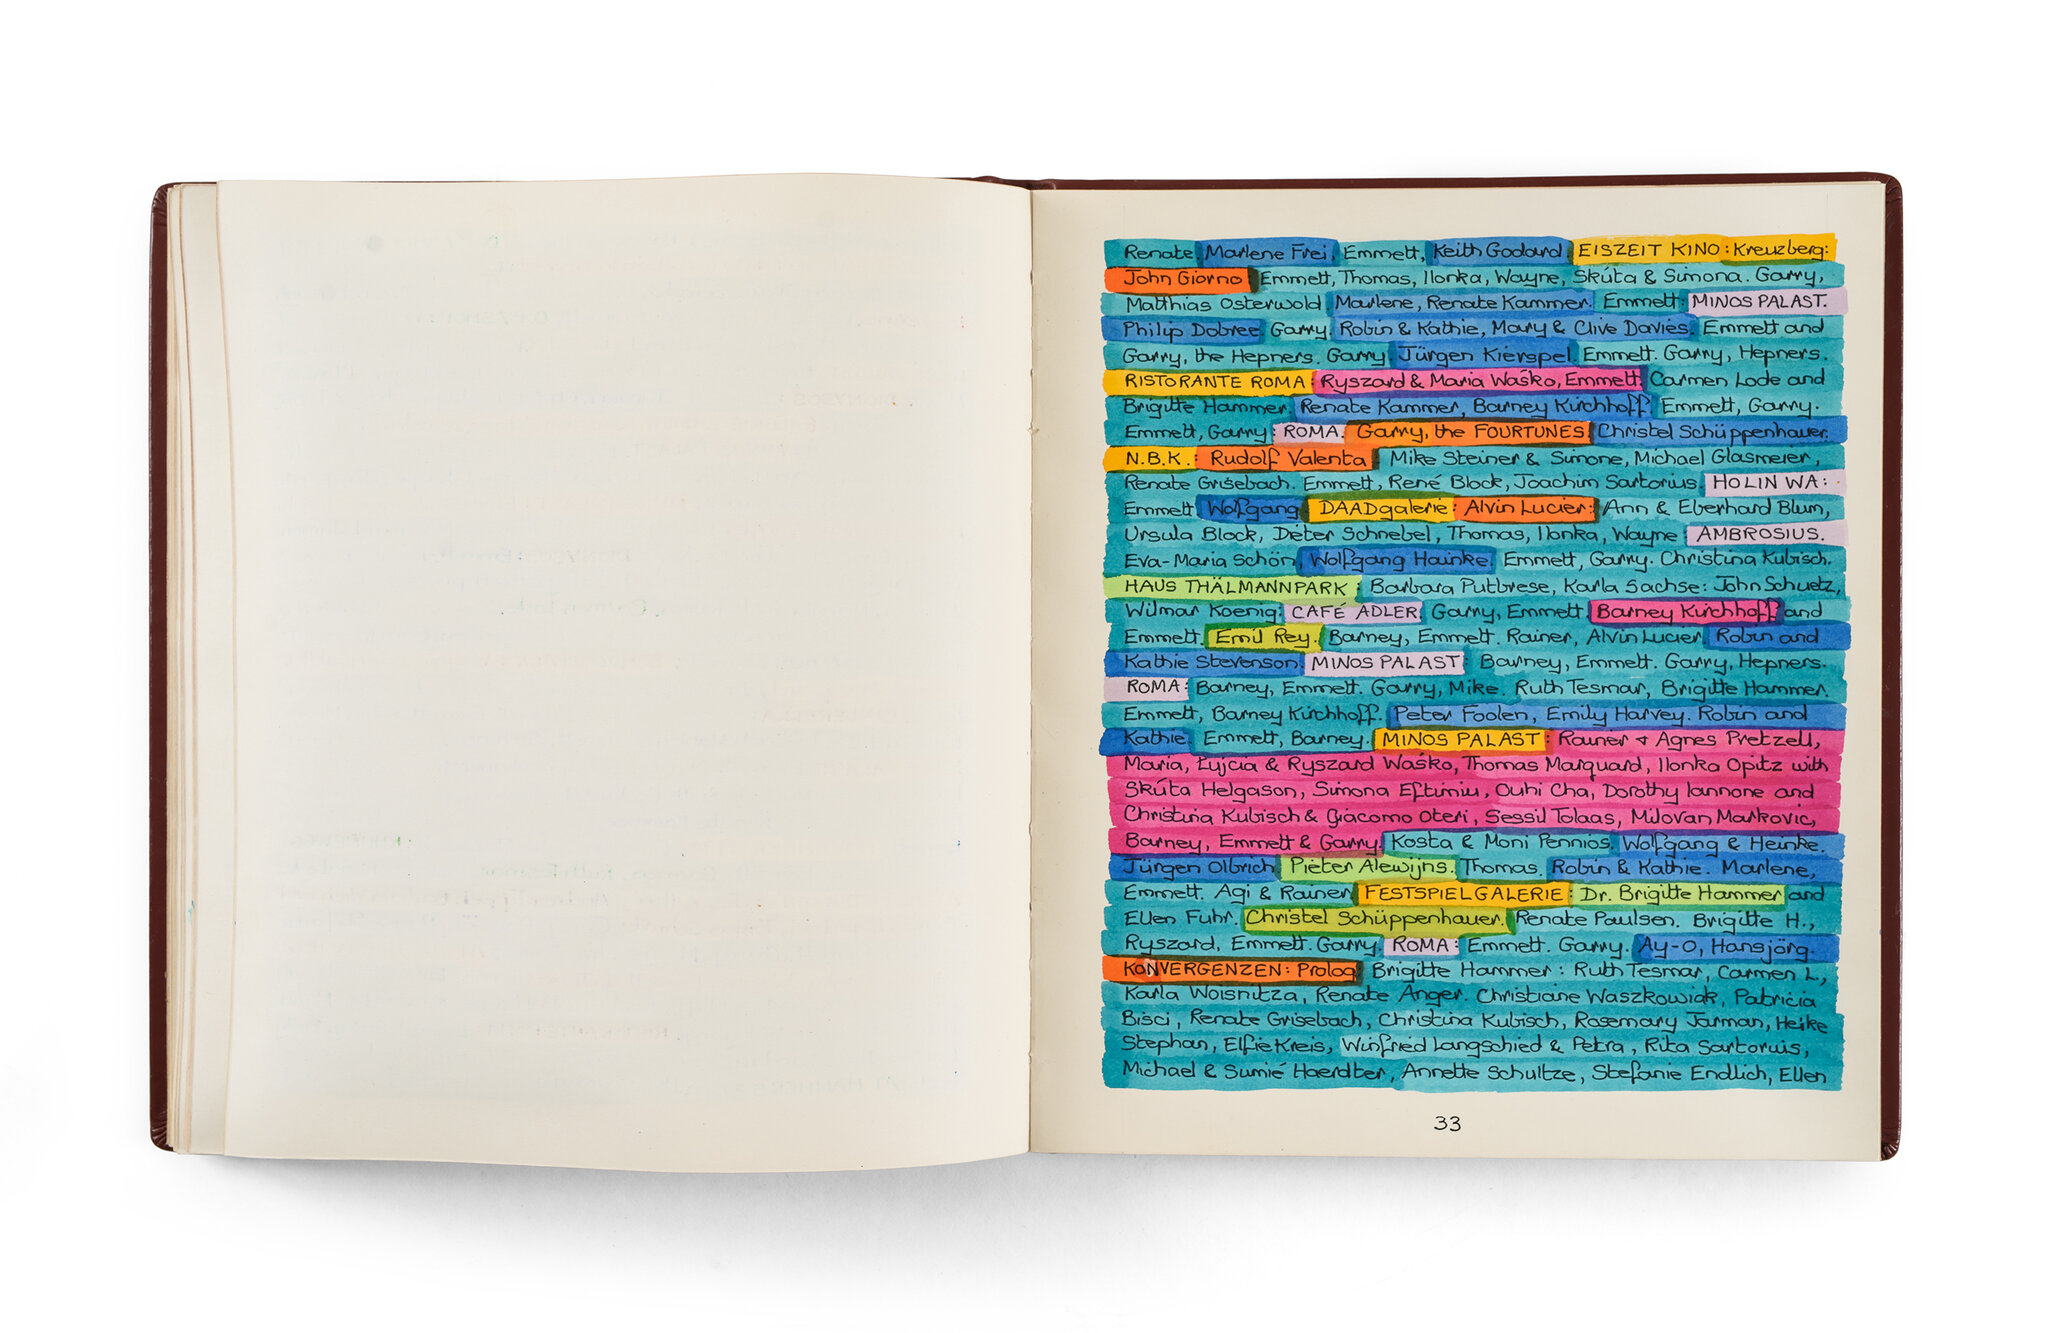 Renate Marlene Frei, Emmett, Keith Godard. EISZEIT KINO: Kreuzberg:
John Giorno Emmett, Thomas, Ilonka, Wayne, Skúta & Simona. Garry,
Matthias Osterwold Marlene, Renate Kammer. Emmett: MINOS PALAST.
Philip Dobree. Garry. Robin & Kathie, Mary & Clive Davies. Emmett and
Garry, the Hepners. Garry. Jürgen Kierspel. Emmett. Garry, Hepners.
RISTORANTE ROMA: Ryszard & Maria Waśko, Emmett. Carmen Lode and
Brigitte Hammer. Renate Kammer, Barney Kirchhoff. Emmett, Garry.
Emmett, Garry: ROMA. Garry, the FOURTUNES. Christel Schüppenhauer.
N.B.K.: Rudolf Valenta Mike Steiner & Simone, Michael Glasmeier,
Renate Grisebach. Emmett, René Block, Joachim Sartorius. HOLIN WA:
Emmett Wolfgang DAADgalerie: Alvin Lucier: Ann & Eberhard Blum,
Ursula Block, Dieter Schnebel, Thomas, Ilonka, Wayne: AMBROSIUS.
Eva-Maria Schön, Wolfgang Hainke. Emmett, Garry. Christina Kubisch.
HAUS THÄLMANNPARK Barbara Putbrese, Karla Sachse: John Schuetz,
Wilmar Koenig: CAFÉ ADLER. Garry, Emmett. Barney Kirchhoff and
Emmett. Emil Rey. Barney, Emmett. Rainer, Alvin Lucier. Robin and
Kathie Stevenson. MINOS PALAST: Barney, Emmett. Garry, Hepners.
ROMA: Barney, Emmett. Garry, Mike. Ruth Tesmar, Brigitte Hammer.
Emmett, Barney Kirchhoff. Peter Foolen, Emily Harvey. Robin and
Kathie. Emmett, Barney. MINOS PALAST: Rainer + Agnes Pretzell,
Maria, Łyjcia & Ryszard Waśko, Thomas Marquard, Ilonka Opitz with
Skúta Helgason, Simona Eftimiu, Ouhi Cha, Dorothy Iannone and
Christina Kubisch & Giacomo Oteri, Sessil Tolaas, Milovan Markovic,
Barney, Emmett & Garry. Kosta & Moni Pennios. Wolfgang & Heinke.
Jürgen Olbrich Pieter Alewijns. Thomas. Robin & Kathie. Marlene,
Emmett. Agi & Rainer FESTSPIELGALERIE: Dr. Brigitte Hammer and
Ellen Fuhr. Christel Schüppenhauer. Renate Paulsen. Brigitte H.,
Ryszard, Emmett. Garry. ROMA: Emmett. Garry. Ay-O, Hansjörg.
KONVERGENZEN: Prolog Brigitte Hammer: Ruth Tesmar, Carmen L,
Karla Woisnitza, Renate Anger. Christiane Waszkowiak, Patricia
Bisci, Renate Grisebach, Christina Kubisch, Rosemary Jarman, Heike
Stephan, Elfie Kreis, Winfried Langschied & Petra, Rita Sartorius,
Michael & Sumié Haerdter, Annette Schultze, Stefanie Endlich, Ellen
33